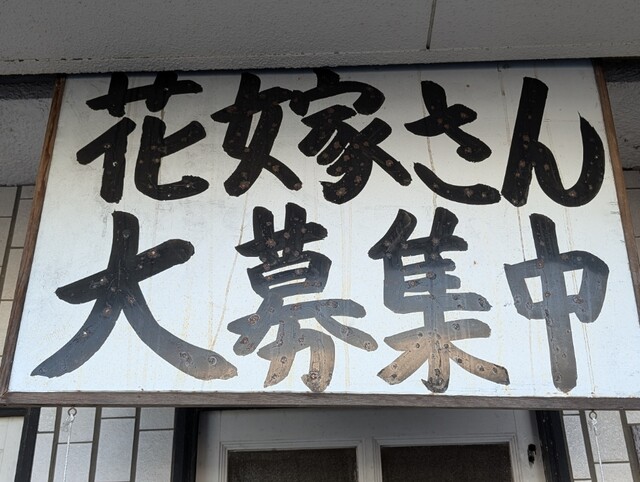 花嫁さん
大募集中